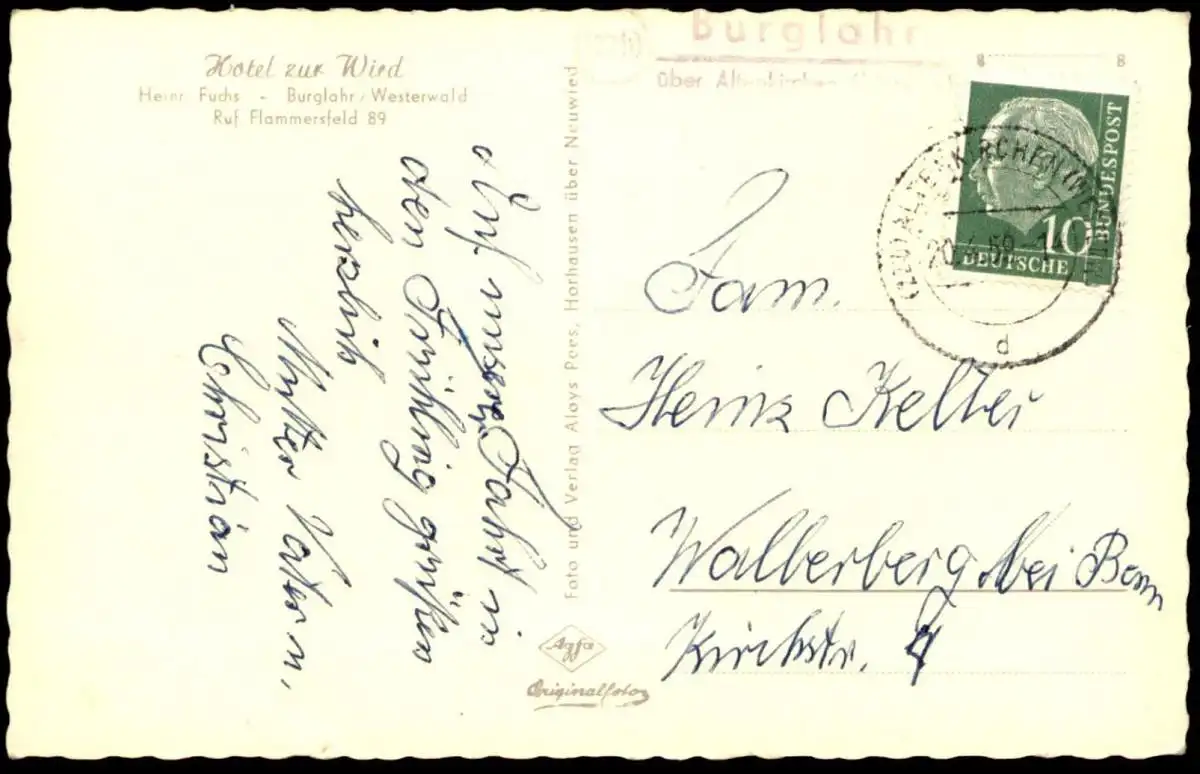 Hotel zur Wied
Heinr. Fuchs - Burglahr/Westerwald
Ruf Flammersfeld 89
Burglahr
über Altenkirchen
8 8
BUNDESPOST
10
DEUTSCHE
(22b) ALTENKIRCHEN (WESTERW
20.4.59-14
d
Auf unserer Fahrt in
den Frühling grüßen
herzlich
Mutter Vater u.
Christian
Foto und Verlag Aloys Pees, Horhausen über Neuwied
Agfa
Originalfoto
Fam.
Heinz Kelter
Walberberg bei Bonn
Kirchstr. 4